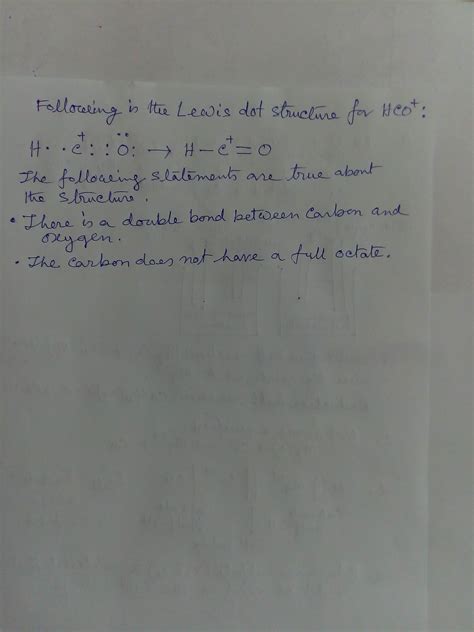 Following is the Lewis dot structure for HCO⁺:
H··C⁺::Ö: → H–C⁺=O
The following statements are true about
the structure.
• There is a double bond between Carbon and
oxygen.
• The carbon does not have a full octate.